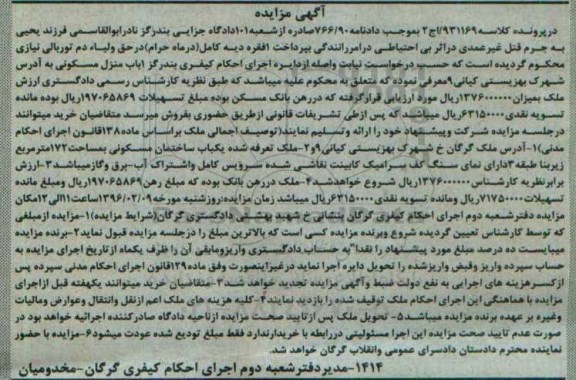 آگهی مزایده
درپرونده کلاسه ۹۳۱۱۶۹/اج۲ بموجب دادنامه ۷۶۶/۹۰صادره ازشعبه۱۰۱دادگاه جزایی بندرگز نادرابوالقاسمی فرزند یحیی
به جرم قتل غیرعمدی دراثر بی احتیاطی درامررانندگی بپرداخت ۱فقره دیه کامل(درماه حرام)درحق ولیاء دم توربالی نیازی
محکوم گردیده است که حسب درخواست نیابت واصله ازدایره اجرای احکام کیفری بندرگز ۱باب منزل مسکونی به آدرس
شهرک بهزیستی کیانی۹معرفی نموده که متعلق به محکوم علیه میباشد که طبق نظریه کارشناس رسمی دادگستری ارزش
ملک بمیزان۱۳۷۶۰۰۰۰۰۰ریال مورد ارزیابی قرارگرفته که دررهن بانک مسکن بوده مبلغ تسهیلات ۱۹۷۰۶۵۸۶۹ریال بوده مانده
تسویه نقدی۶۳۱۵۰۰۰۰ریال میباشد که پس ازطی تشریفات قانونی ازطریق حضوری بفروش میرسد متقاضیان خرید میتوانند
درجلسه مزایده شرکت وپیشنهاد خود را ارائه وتسلیم نمایند(توصیف اجمالی ملک براساس ماده۱۳۸قانون اجرای احکام
مدنی)۱-آدرس ملک گرگان خ شهرک بهزیستی کیانی۹و۲-ملک تعرفه شده یکباب ساختمان مسکونی بمساحت۱۷۲مترمربع
زیربنا طبقه۳دارای نمای سنگ کف سرامیک کابینت نقاشی شده سرویس کامل واشتراک آب-برق وگازمیباشد۳-ارزش
برابرنظریه کارشناس۱۳۷۶۰۰۰۰۰۰ریال شروع خواهدشد۴-ملک دررهن بانک بوده که مبلغ رهن۱۹۷۰۶۵۸۶۹ریال ومبلغ مانده
تسهیلات۷۱۷۵۰۰۰۰ریال ومانده تسویه نقدی۶۳۱۵۰۰۰۰ریال میباشد زمان مزایده:روزشنبه مورخه۱۳۹۶/۰۲/۰۹ساعت۱۱الی۱۲مکان
مزایده دفترشعبه دوم اجرای احکام کیفری گرگان بنشانی خ شهید بهشتی دادگستری گرگان(شرایط مزایده)۱-مزایده ازمبلغی
که توسط کارشناس تعیین گردیده شروع وبرنده مزایده کسی است که بالاترین مبلغ را درجلسه مزایده قبول نماید۲-برنده مزایده
میبایست ده درصد مبلغ مورد پیشنهاد را نقدا"به حساب دادگستری واریزومابقی آن را ظرف یکماه ازتاریخ اجرای مزایده به
حساب سپرده واریز وقبض واریزشده را تحویل دایره اجرا نماید درغیراینصورت وفق ماده۱۲۹قانون اجرای احکام مدنی سپرده پس
ازکسرهزینه های اجرایی به نفع دولت ضبط وآگهی مزایده تجدید خواهد شد۳-متقاضیان خرید میتوانند یکهفته قبل ازاجرای
مزایده با هماهنگی این اجرای احکام ملک توقیف شده را بازدید نمایند۴-کلیه هزینه های ملک اعم ازنقل وانتقال وعوارض ومالیات
وغیره بر عهده برنده مزایده میباشد۵- تحویل ملک پس ازتایید صحت مزایده ازناحیه دادگاه صادرکننده اجرائیه خواهد بود در
صورت عدم تایید صحت مزایده این اجرا مسئولیتی دررابطه با خریدارندارد فقط مبلغ تودیع شده عودت میشود۶-مزایده با حضور
نماینده محترم دادستان دادسرای عمومی وانقلاب گرگان خواهد شد.
۱۴۱۴-مدیردفترشعبه دوم اجرای احکام کیفری گرگان-مخدومیان